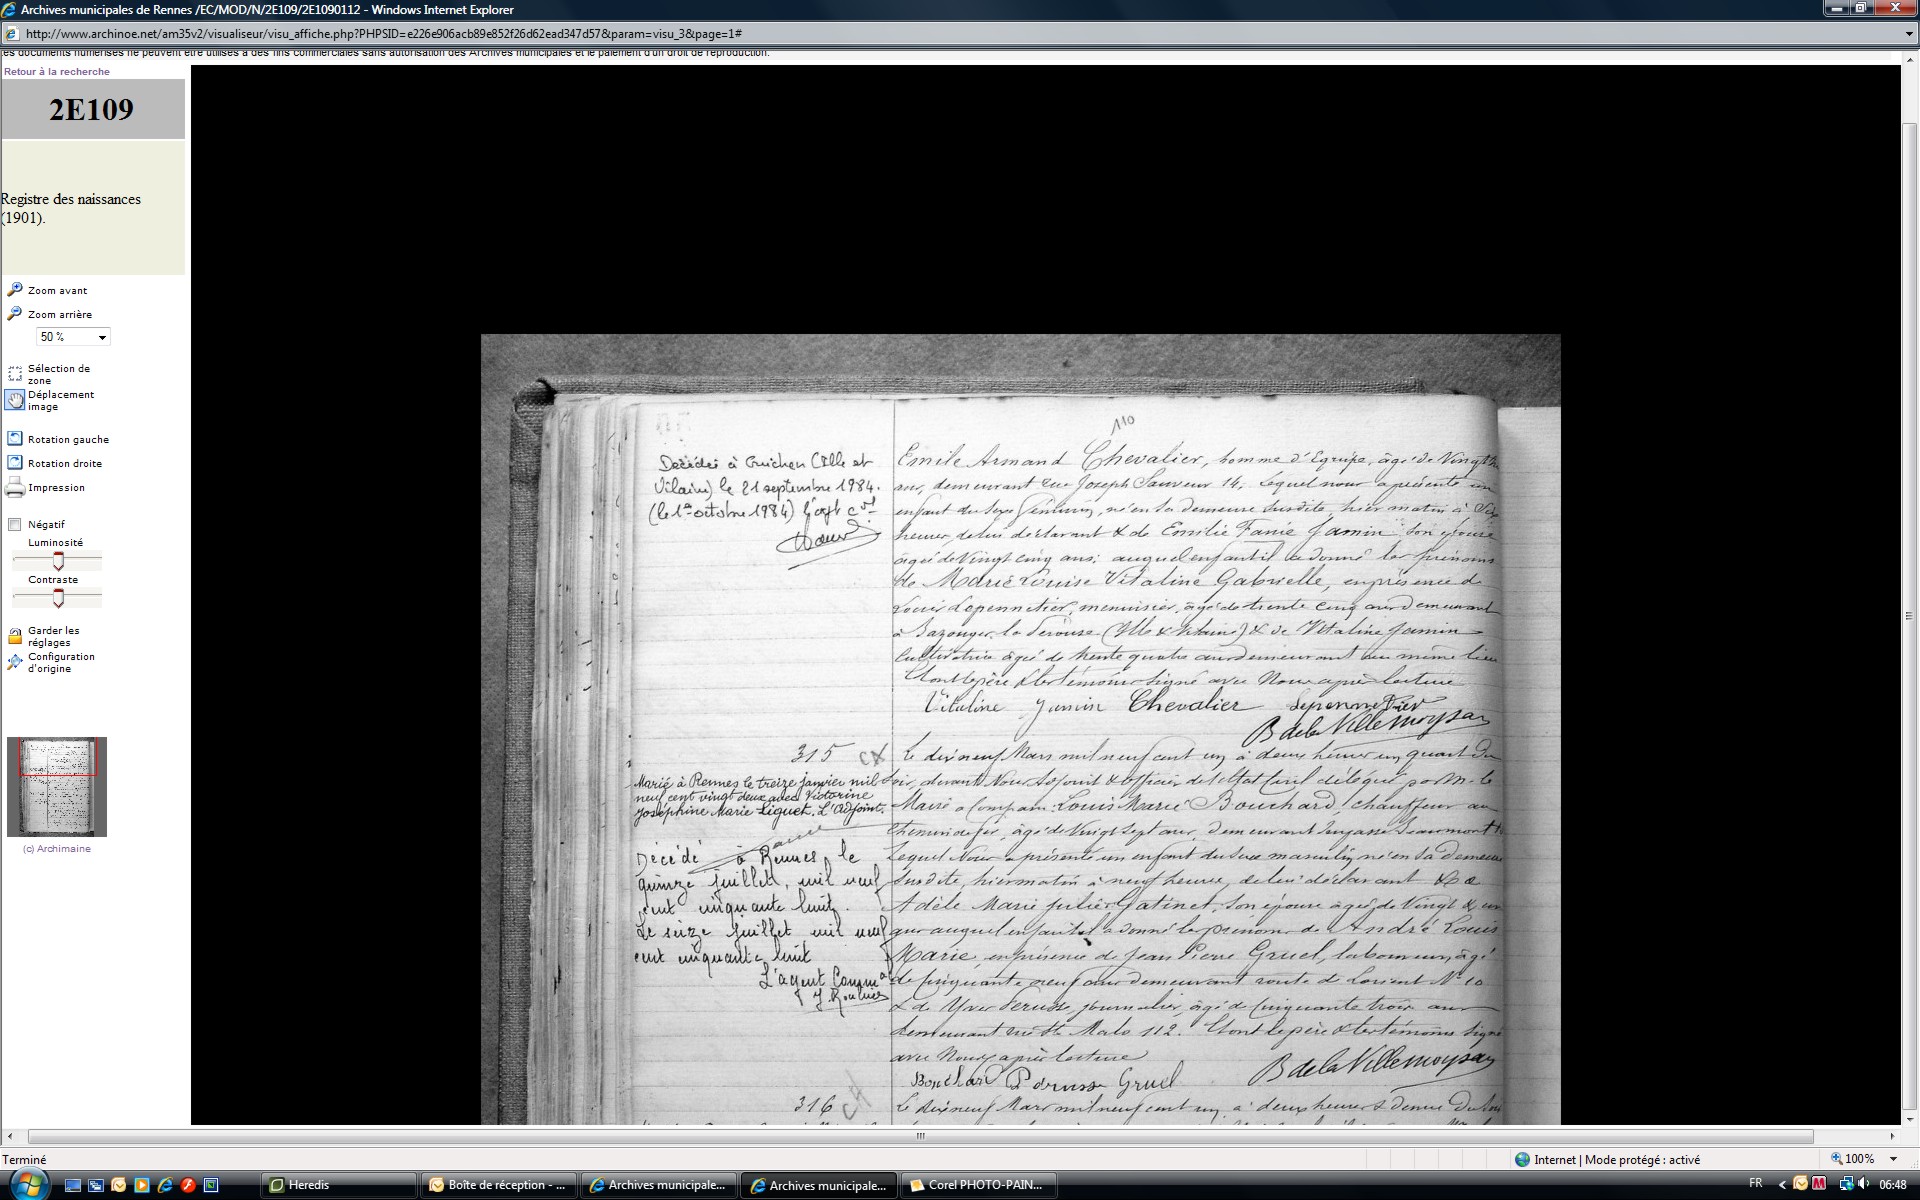 Archives municipales de Rennes /EC/MOD/N/2E109/2E1090112 - Windows Internet Explorer
http://www.archinoe.net/am35v2/visualiseur/visu_affiche.php?PHPSID=e226e906acb89e852f26d62ead347d57&param=visu_3&page=1#
les documents numérisés ne peuvent être utilisés à des fins commerciales sans autorisation des Archives municipales et le paiement d'un droit de reproduction.
Retour à la recherche
2E109
Registre des naissances
(1901).
Zoom avant
Zoom arrière
50 %
Sélection de
zone
Déplacement
image
Rotation gauche
Rotation droite
Impression
Négatif
Luminosité
Contraste
Garder les
réglages
Configuration
d'origine
(c) Archimaine
110
Décédée à Guichen (Ille et
Vilaine) le 21 septembre 1984.
(le 1er octobre 1984)
Emile Armand Chevalier, homme d'Equipe, âgé de Vingt
ans, demeurant rue Joseph Sauveur 14, lequel nous a présenté un
enfant du sexe féminin, né en sa demeure susdite, hier matin à
heures, de lui déclarant & de Emilie Fanie Jamin son épouse
âgée de Vingt cinq ans; auquel enfant il a donné les prénoms
de Marie Louise Vitaline Gabrielle, en présence de
Louis Lepennetier, menuisier, âgé de trente cinq ans demeurant
à Bazouges la Pérouse (Ille & Vilaine) & de Vitaline Jamin
Cultivatrice âgée de trente quatre ans demeurant au même lieu
Dont le père & les témoins signé avec Nous après lecture
Vitaline Jamin Chevalier Lepennetier
B de la Villemoysan
315
Marié à Rennes le treize janvier mil
neuf cent vingt deux avec Victorine
Joséphine Marie Liguet. L'Adjoint.
Décédé à Rennes, le
quinze juillet, mil neuf
cent cinquante huit.
Le seize juillet mil neuf
cent cinquante huit
L'agent
Le dix neuf Mars mil neuf cent un à deux heures un quart du
soir, devant Nous Adjoint & Officier de l'Etat Civil délégué par M. le
Maire a Comparu: Louis Marie Bouchard, chauffeur au
Chemin de fer, âgé de Vingt sept ans, demeurant Impasse
Lequel Nous a présenté un enfant du sexe masculin né en sa demeure
susdite, hier matin à neuf heures, de lui déclarant & de
Adèle Marie Julie Gatinet, son épouse âgée de Vingt & un
ans auquel enfant il a donné les prénoms de André Louis
Marie, en présence de Jean Pierre Gruel, laboureur, âgé
de Cinquante neuf ans demeurant route de Lorient No 10
& de Yves Perusse, journalier, âgé de Cinquante trois ans
demeurant rue St Malo 112. Dont le père & les témoins signé
avec Nous après lecture
Bouchard Perusse Gruel B de la Villemoysan
316
Le dix neuf Mars mil neuf cent un, à deux heures & demie du soir
Terminé
Internet | Mode protégé : activé
100%
Heredis
Boîte de réception - ...
Archives municipale...
Archives municipale...
Corel PHOTO-PAIN...
FR
06:48